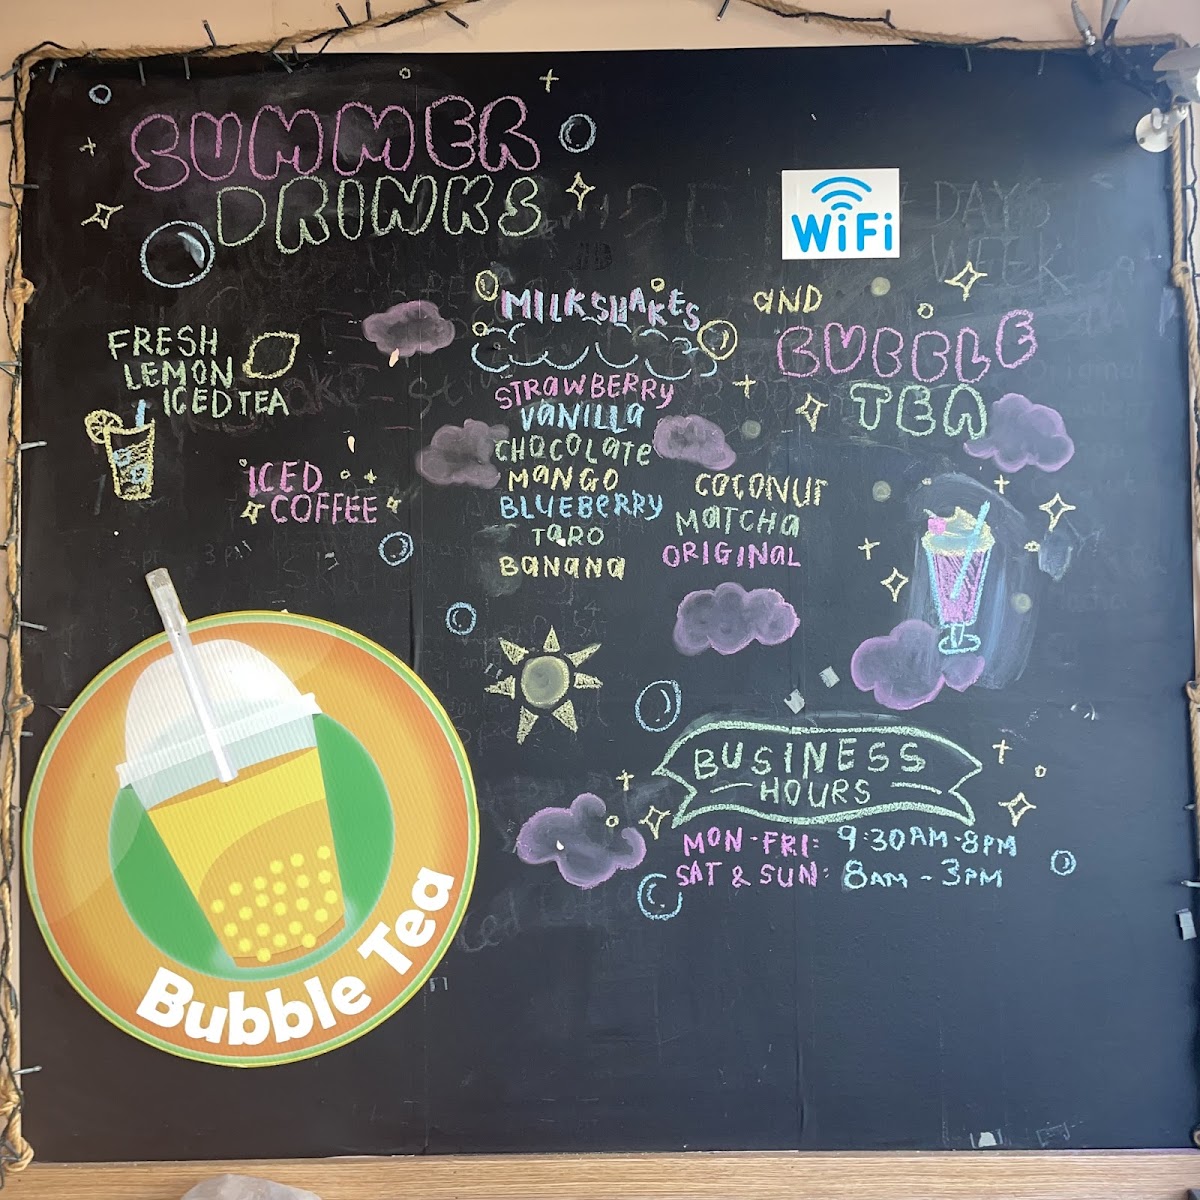 SUMMER
DRINKS
WiFi
DAYS
WEEK
MILKSHAKES
AND
BUBBLE
TEA
FRESH
LEMON
ICED TEA
ICED
COFFEE
STRAWBERRY
VANILLA
CHOCOLATE
MANGO
BLUEBERRY
TARO
BANANA
COCONUT
MATCHA
ORIGINAL
BUSINESS
HOURS
MON-FRI: 9:30AM-8PM
SAT & SUN: 8AM - 3PM
Bubble Tea